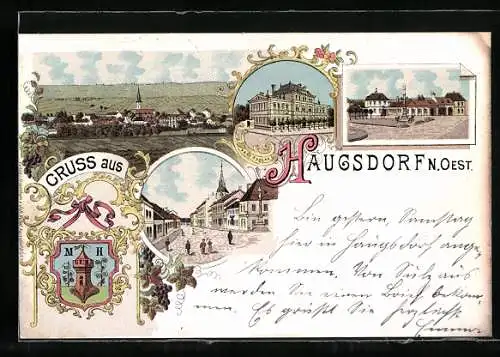 GRUSS aus
HAUGSDORF N. OEST.
M H
Bin gestern, Samstag
hier in Haugsdorf ange-
kommen. Von Sulz aus
werden Sie einen Brief bekom-
men. Es grüßt Sie herzlichst